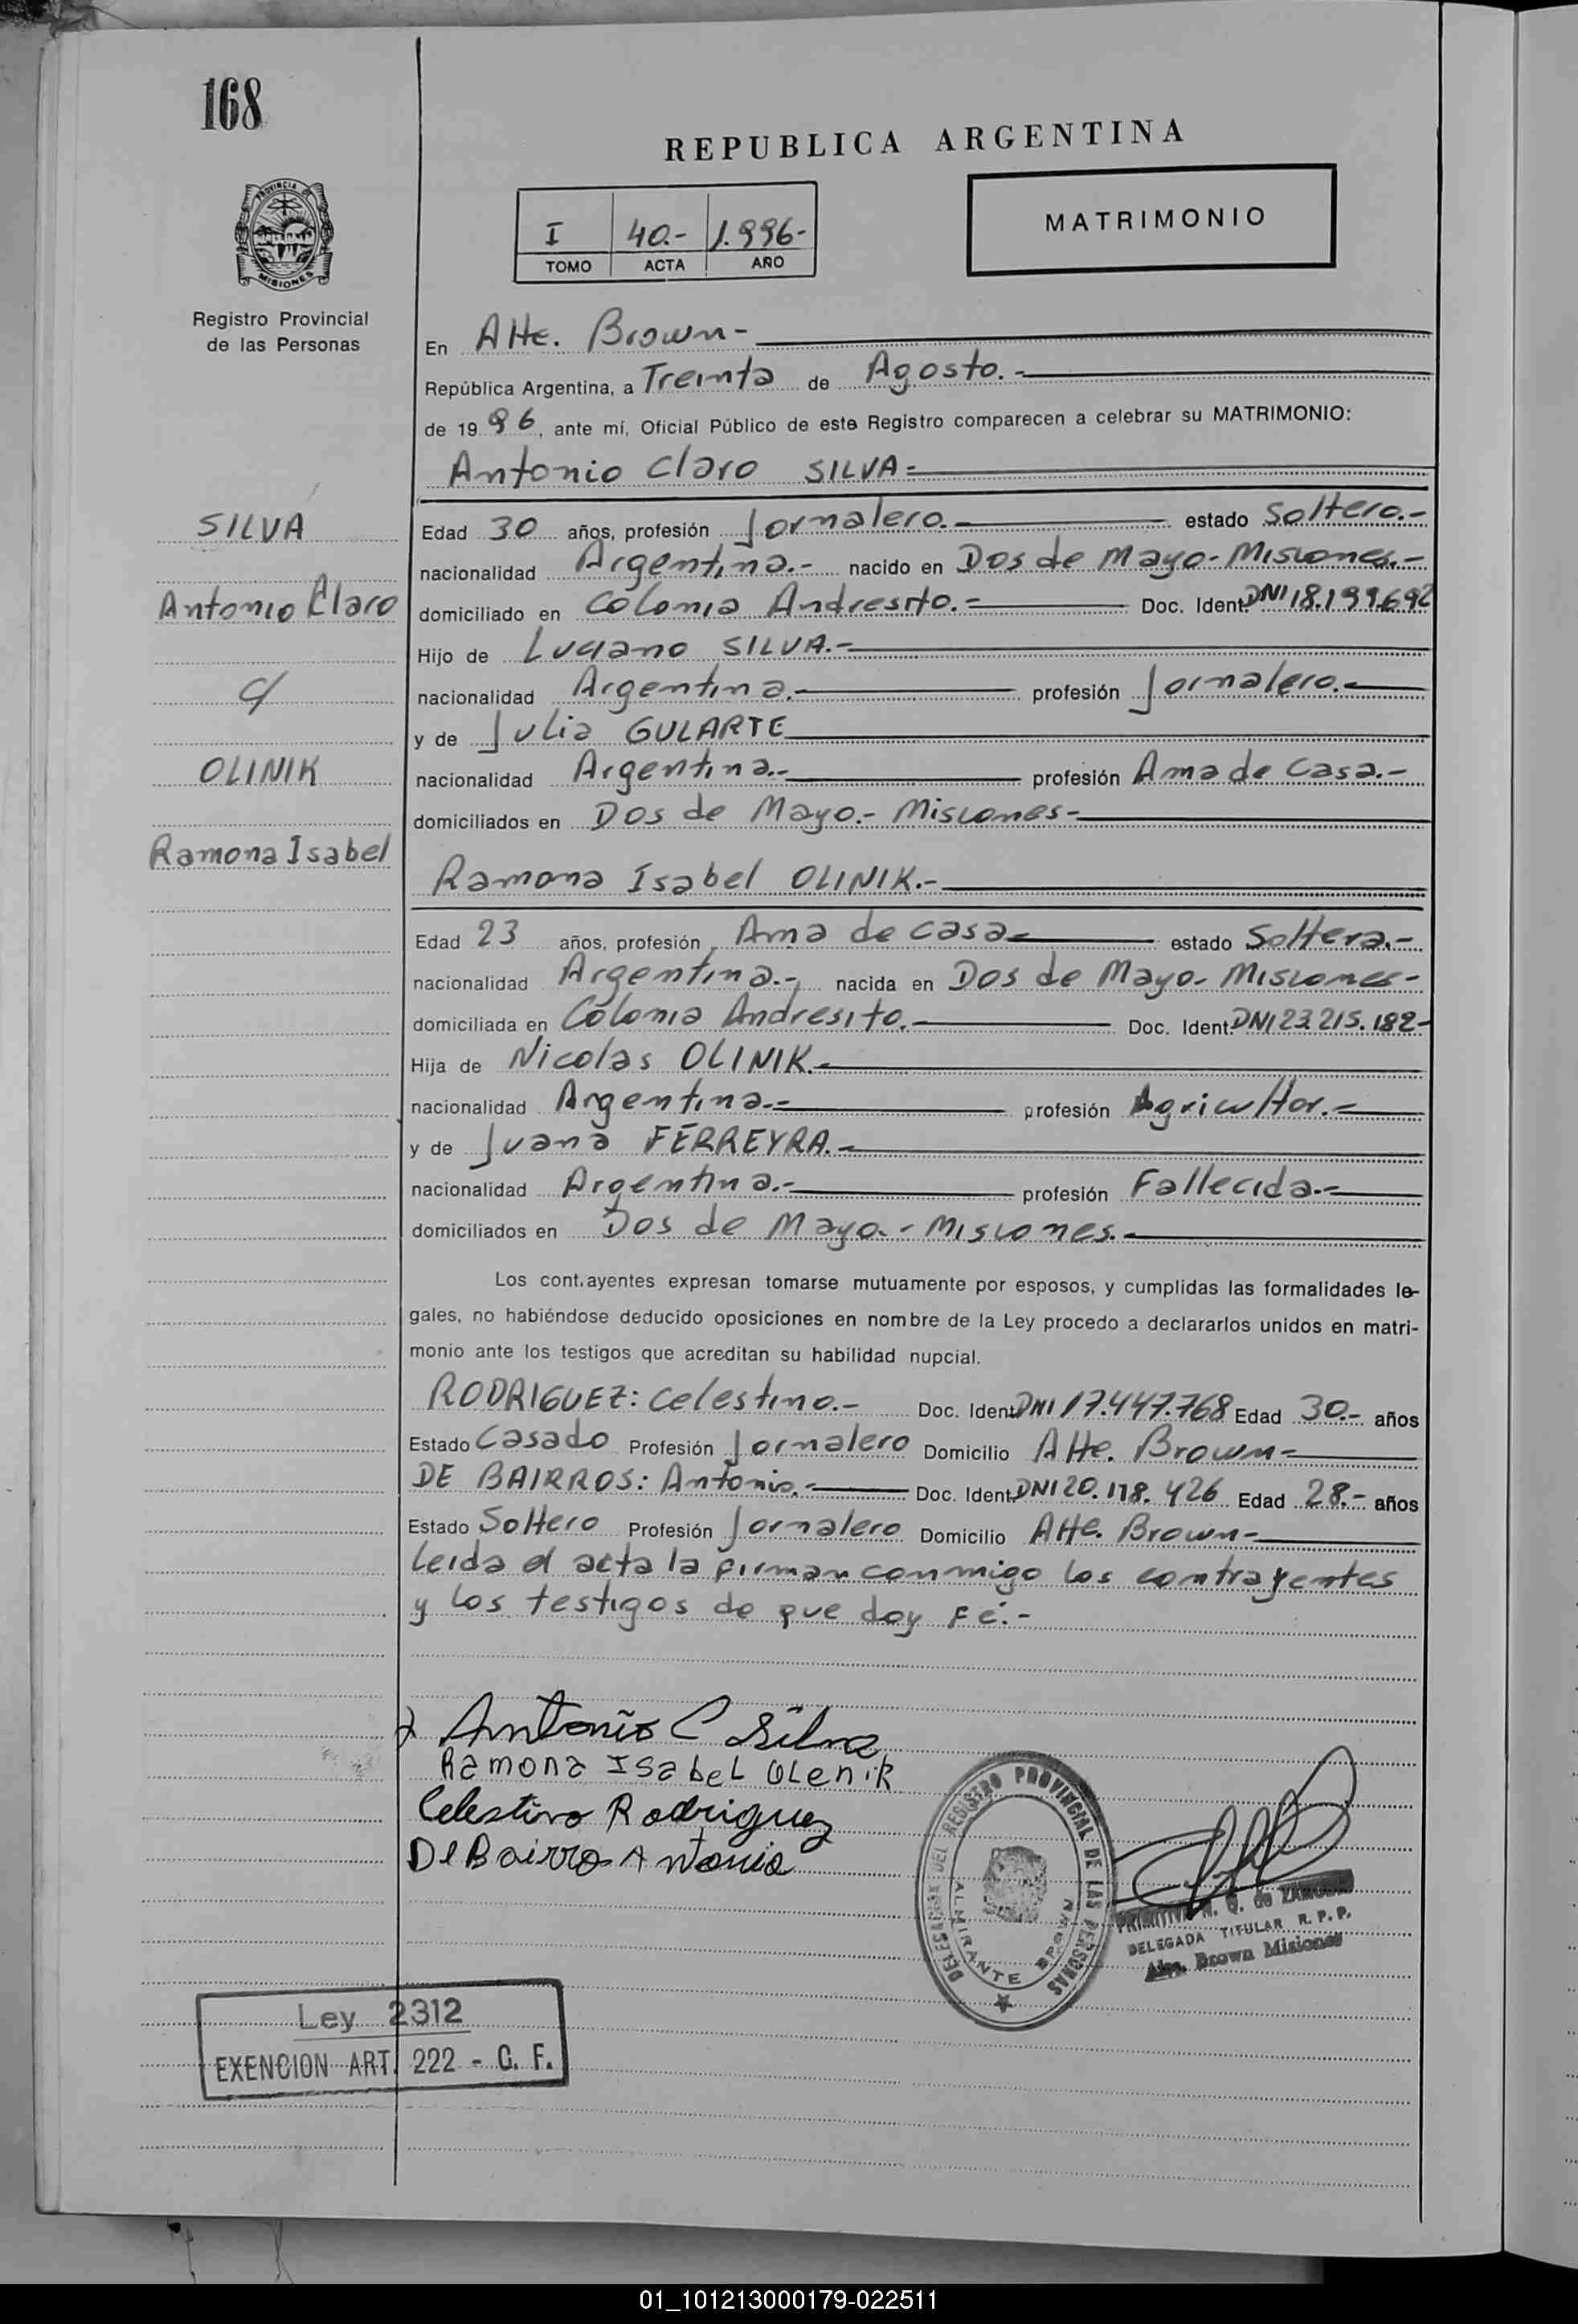 168
REPUBLICA ARGENTINA
PROVINCIA DE
MISIONES
I 40.- 1.996-
TOMO ACTA AÑO
MATRIMONIO
Registro Provincial
de las Personas
En Alte. Brown-
República Argentina, a Treinta de Agosto.-
de 1996, ante mí, Oficial Público de este Registro comparecen a celebrar su MATRIMONIO:
Antonio Claro SILVA=
SILVA
Edad 30 años, profesión Jornalero.- estado Soltero.-
nacionalidad Argentina.- nacido en Dos de Mayo-Misiones.-
Antonio Claro
domiciliado en Colonia Andresito.- Doc. Ident. DNI 18.199.692
Hijo de Luciano SILVA.-
c/
nacionalidad Argentina.- profesión Jornalero.-
y de Julia GULARTE
OLINIK
nacionalidad Argentina.- profesión Ama de Casa.-
domiciliados en Dos de Mayo.- Misiones-
Ramona Isabel
Ramona Isabel OLINIK.-
Edad 23 años, profesión Ama de casa- estado Soltera.-
nacionalidad Argentina.- nacida en Dos de Mayo- Misiones-
domiciliada en Colonia Andresito.- Doc. Ident. DNI 23.215.182-
Hija de Nicolas OLINIK.-
nacionalidad Argentina.- profesión Agricultor.-
y de Juana FERREYRA.-
nacionalidad Argentina.- profesión Fallecida.-
domiciliados en Dos de Mayo.- Misiones.-
Los cont.ayentes expresan tomarse mutuamente por esposos, y cumplidas las formalidades le-
gales, no habiéndose deducido oposiciones en nombre de la Ley procedo a declararlos unidos en matri-
monio ante los testigos que acreditan su habilidad nupcial.
RODRIGUEZ: Celestino.- Doc. Ident. DNI 17.447.768 Edad 30.- años
Estado Casado Profesión Jornalero Domicilio Alte. Brown-
DE BAIRROS: Antonio.- Doc. Ident. DNI 20.118.426 Edad 28.- años
Estado Soltero Profesión Jornalero Domicilio Alte. Brown-
Leida el acta la firman conmigo los contrayentes
y los testigos de que doy Fé.-
Antonio C Silva
Ramona Isabel Olenik
Celestino Rodriguez
De Bairro Antonio
DELEGACION DEL REGISTRO PROVINCIAL DE LAS PERSONAS
ALMIRANTE BROWN
N. G. de
DELEGADA TITULAR R. P. P.
Alte. Brown Misiones
Ley 2312
EXENCION ART. 222 - C. F.
01_101213000179-022511